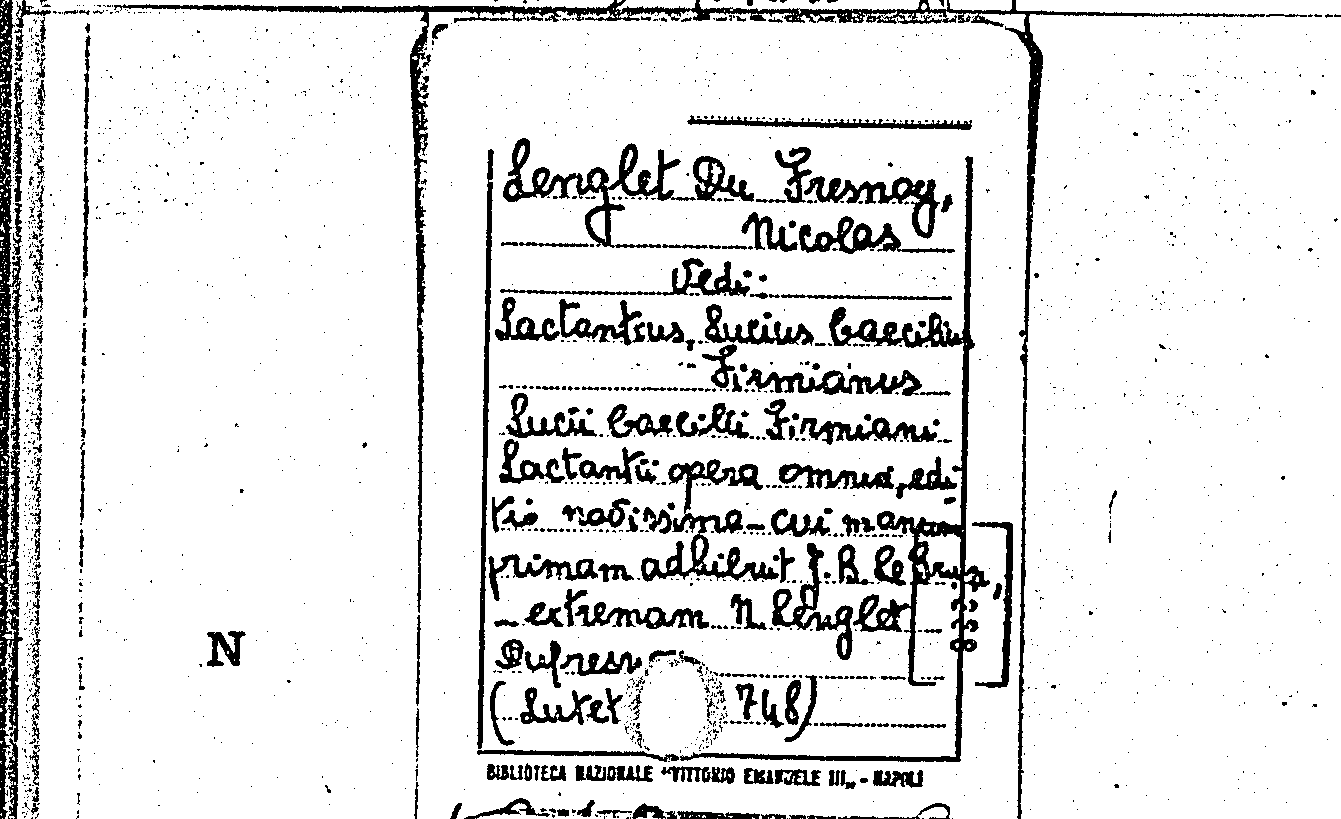 Lenglet Du Fresnoy,
Nicolas
Vedi:
Lactantius, Lucius Caecilius
Firmianus
Lucii Caecilii Firmiani
Lactantii opera omnia, edi
tio novissima - cui manum
primam adhibuit J. B. Le Brun,
- extremam N. Lenglet
Dufresn
(Lutet 748)
N
BIBLIOTECA NAZIONALE "VITTORIO EMANUELE III„ - NAPOLI